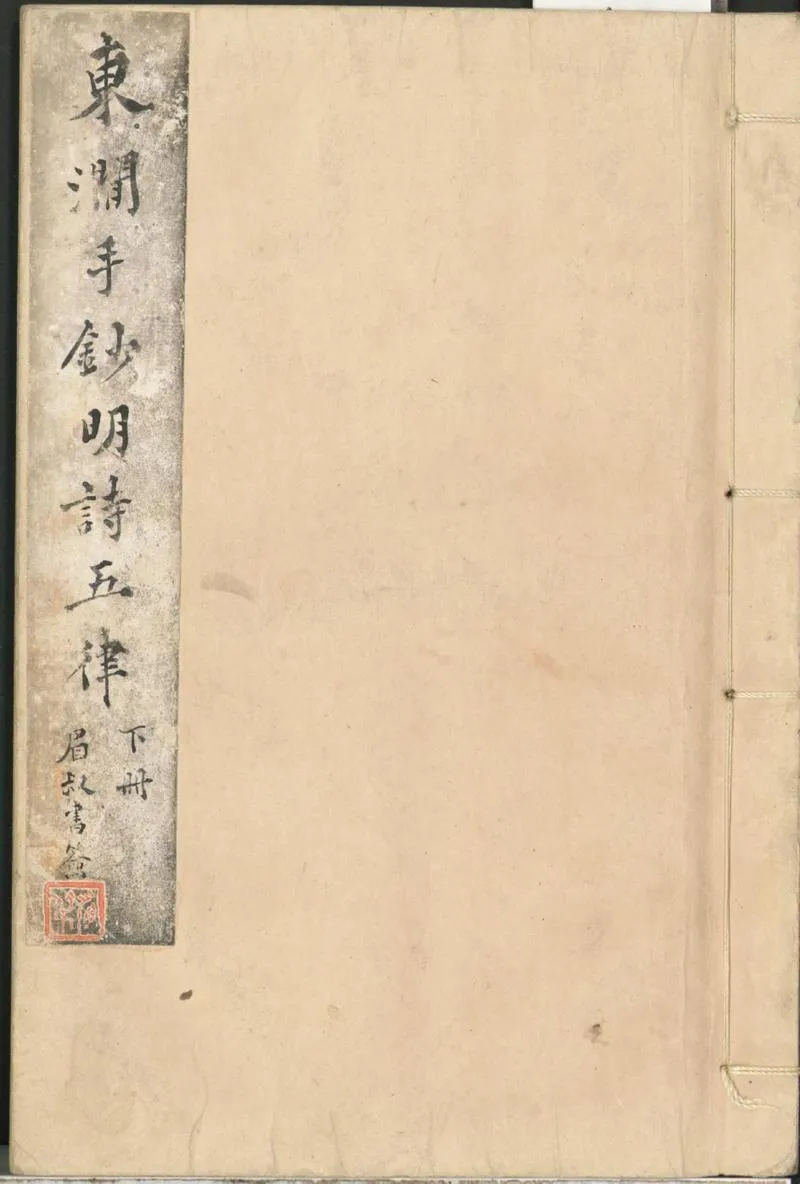 東澗手鈔明詩五律
下冊
眉叔書簽